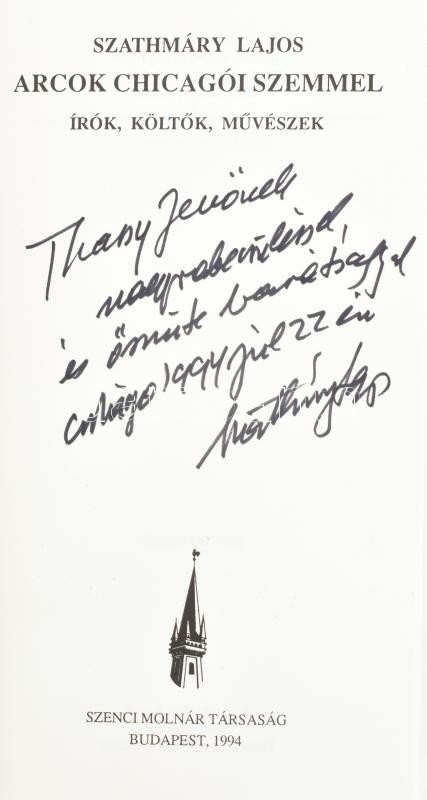 SZATHMÁRY LAJOS
ARCOK CHICAGÓI SZEMMEL
ÍRÓK, KÖLTŐK, MŰVÉSZEK
Thassy Jenőnek
nagyrabecsüléssel,
és őszinte barátsággal
Chicago 1994 júl 22 én
Szathmáry Lajos
SZENCI MOLNÁR TÁRSASÁG
BUDAPEST, 1994